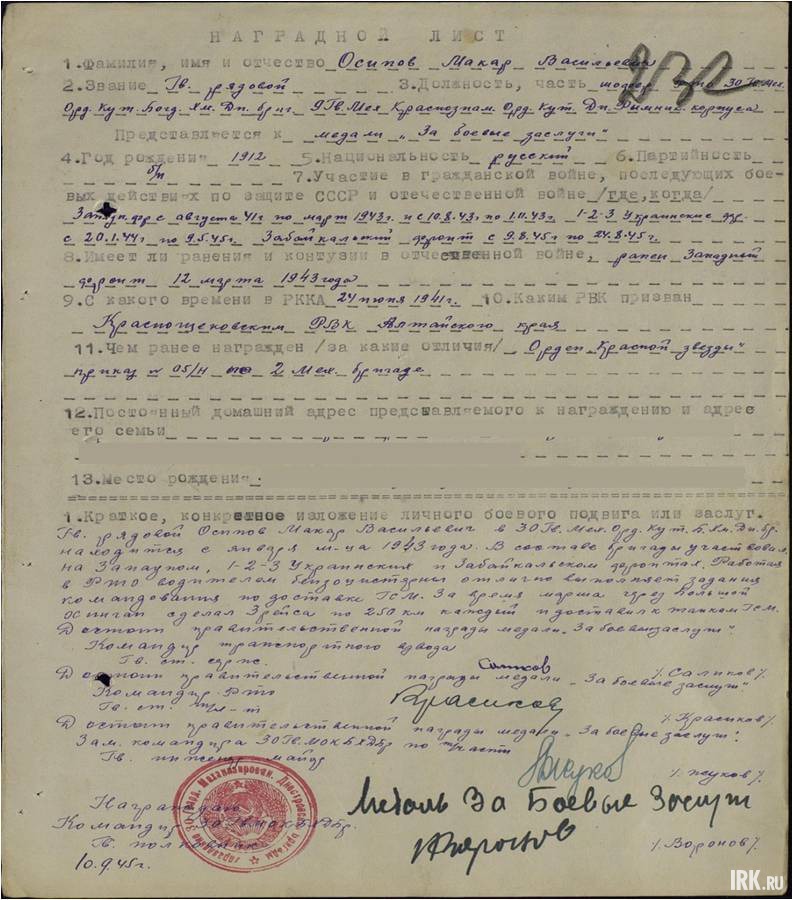 НАГРАДНОЙ ЛИСТ
232
1.Фамилия, имя и отчество Осипов Макар Васильевич
2.Звание Гв. рядовой 3.Должность, часть шофер РТО 30 Гв. Мех.
Орд. Кут. Богд. Хм. Дн. бриг 9 Гв. Мех Краснознам. Орд. Кут. Дн. Римник. корпуса
Представляется к медали „За боевые заслуги"
4.Год рождения 1912 5.Национальность русский 6.Партийность
б/п 7.Участие в гражданской войне, последующих бое-
вых действиях по защите СССР и отечественной войне /где,когда/
Запад. фр с августа 41г по март 1943г. и с 10.8.43г по 1.11.43г. 1-2-3 Украинские фр.
с 20.1.44г по 9.5.45г. Забайкальский фронт с 9.8.45г по 24.8.45г.
8.Имеет ли ранения и контузии в отечественной войне, ранен Западный
фронт 12 марта 1943 года
9.С какого времени в РККА 24 июня 1941г. 10.Каким РВК призван
Краснощековским РВК Алтайского края
11.Чем ранее награжден /за какие отличия/ Орден „Красной звезды"
приказ № 05/Н по 2 Мех. бригаде
12.Постоянный домашний адрес представляемого к награждению и адрес
его семьи
13.Место рождения
1.Краткое, конкретное изложение личного боевого подвига или заслуг.
Гв. рядовой Осипов Макар Васильевич в 30 Гв. Мех. Орд. Кут. Б. Хм. Дн. бр.
находится с января м-ца 1943 года. В составе бригады участвовал
на Западном, 1-2-3 Украинских и Забайкальском фронтах. Работая
в РТО водителем бензоцистерны отлично выполняет задания
командования по доставке ГСМ. За время марша через Большой
Хинган сделал 3 рейса по 250 км каждый и доставил к танкам ГСМ.
Достоин правительственной награды медали „За боевые заслуги".
Командир транспортного взвода
Гв. ст. серж. Саликов /Саликов/.
Достоин правительственной награды медали „За боевые заслуги"
Командир РТО
Гв. ст. т/л-т Красиков /Красиков/.
Достоин правительственной награды медали „За боевые заслуги".
Зам. командира 30 ГвМОКБХДБр по тех/части
Гв. инженер майор /Жуков/.
Награждаю Медаль За Боевые Заслуги
Командир 30 ГвМОКБХДБр.
Гв. полковник /Воронов/.
10.9.45г.
IRK.RU